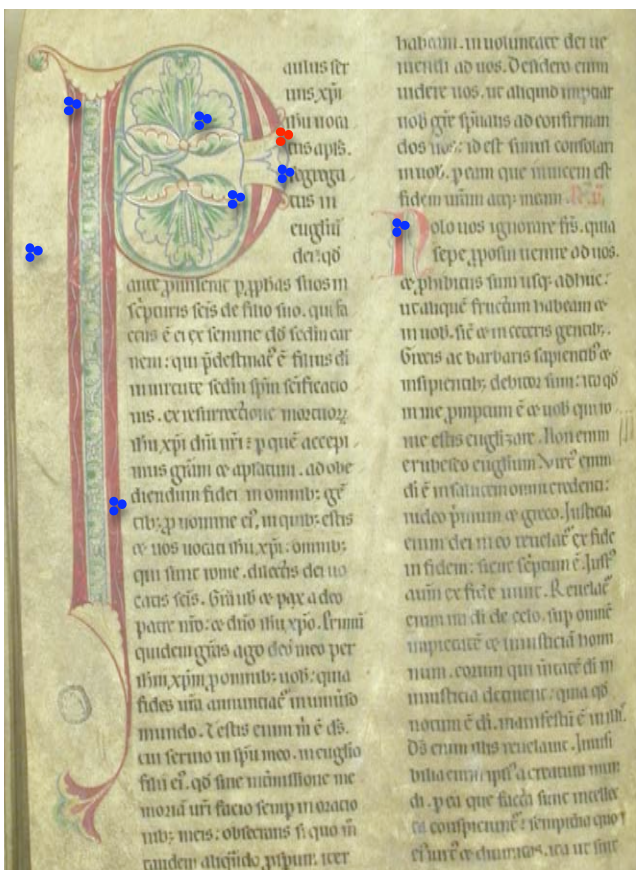 P
aulus ser
uus xp̄i
ih̄u uoca
tus apl̄s.
segrega
tus in
eug̃liū
dei: qđ
ante promiserat p ꝓphãs suos in
sc̃pturis sc̃is de filio suo. qui fa
ctus ē ei ex semine dđ sc̃din car
nem: qui p̃destinat᷒ ē filius di
in uirtute sc̃din sp̃m sc̃ificatio
nis. ex resurrectione mortuoꝝ
ih̄u xp̄i dn̄i nr̄i: p quē accepi
mus gr̃am ⁊ apl̃atum. ad obe
diendum fidei in omnib; gẽ
tib; ꝓ nomine ei᷒, in quib; estis
⁊ uos uocati ih̄u xp̄i: omnib;
qui sunt rome. dilectis dei uo
catis sc̃is. Gr̃a uob ⁊ pax a deo
patre nr̄o: ⁊ dn̄o ih̄u xp̄o. Primū
quidem gr̃as ago deo meo per
ih̄m xp̄m ꝓ omnib; uob: quia
fides ur̄a annunciat᷒ in uniũso
mundo. Testis enim m̄ ē d̄s.
cui seruio in sp̄u meo. in euglio
filii ei᷒. qđ sine int̃missione me
moriā ur̄i facio semp in oratio
nib; meis: obsecrans si quo m̄
tandem aliqñdo. ꝓspum. iter
habeam. in uoluntate dei ue
niendi ad uos. Desidero enim
uidere uos. ut aliquid impciar
uob gr̃e sp̃ualis ad confirman
dos uos: id est simul consolari
in uob. p eam que inuicem est
fidem ur̄am atq; meam.
Nolo uos ignorare fr̄s. quia
sepe ꝓposui uenire ad uos.
⁊ ꝓhibitus sum usq; adhuc:
ut aliquē fructum habeam ⁊
in uob. sic̄ ⁊ in ceteris gentib;.
Grecis ac barbaris sapientib; ⁊
insipientib; debitor sum: ita qđ
in me ꝓmptum ē ⁊ uob qui ro
me estis euglizare. Non enim
erubesco euglium. Virt᷒ enim
di ē in salutem omni credenti:
iudeo p̃mum ⁊ greco. Iusticia
enim dei in eo reuelat᷒ ex fide
in fidem: sicut sc̃ptum ē. Iust᷒
autm̄ ex fide uiuit. Reuelat᷒
enim ira di de celo. sup omnē
impietatē ⁊ iniusticiā homi
num. eorum qui ueritatē di in
iniusticia detinent: quia qđ
notum ē di. manifestū ē in ill᷒.
Ds̄ enim illis reuelauit. Inuisi
bilia enim ipsi᷒ a creatura mun
di. p ea que facta sunt intellec
ta conspiciunt᷒: sempit̃na quoq;
ei᷒ uirt᷒ ⁊ diuinitas. ita ut sint